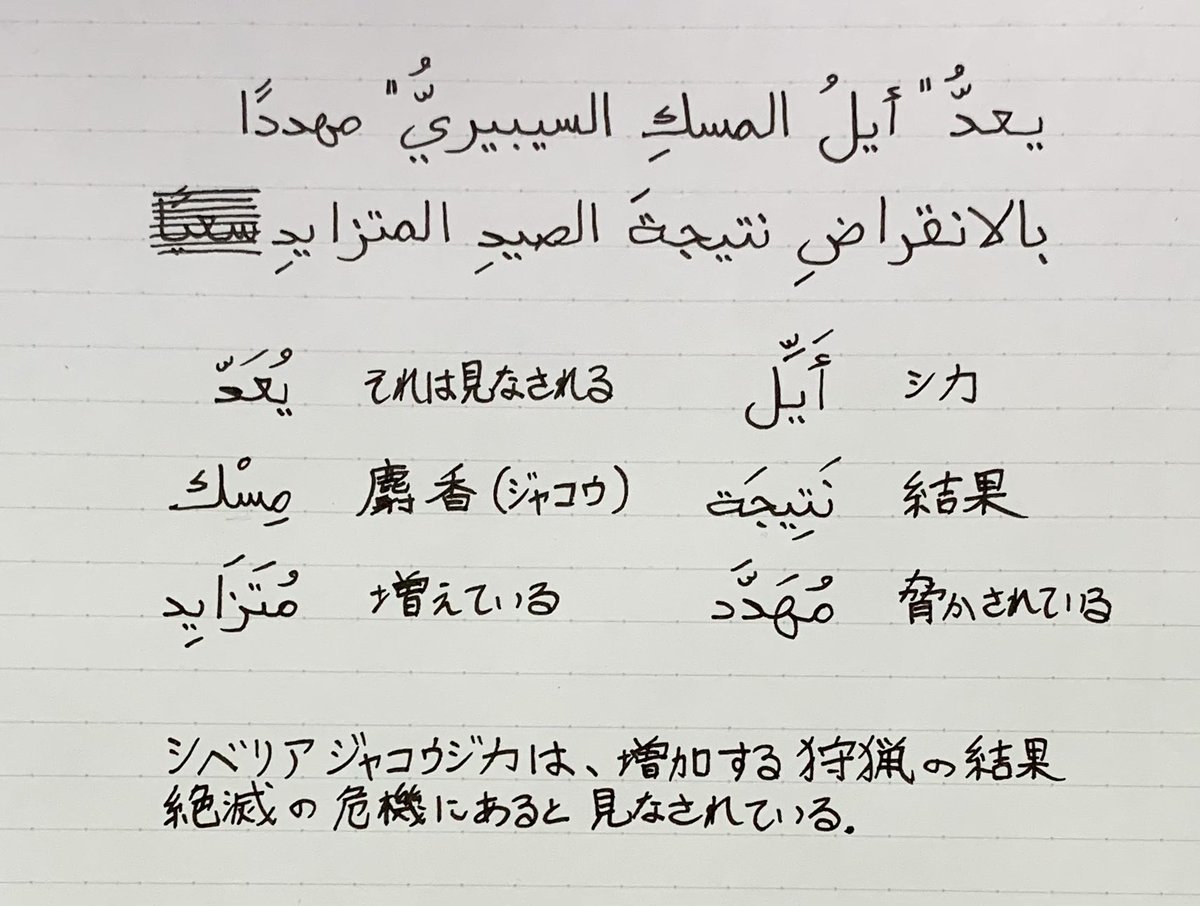 يعدُّ "أيلُ المسكِ السيبيريُّ" مهددًا
بالانقراضِ نتيجةَ الصيدِ المتزايدِ
يُعَدّ それは見なされる أَيِّل シカ
مِسْك 麝香(ジャコウ) نَتِيجَة 結果
مُتَزَايِد 増えている مُهَدَّد 脅かされている
シベリアジャコウジカは、増加する狩猟の結果
絶滅の危機にあると見なされている.